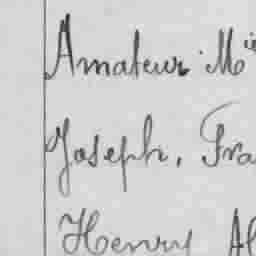 Amateur. Mie
Joseph, Fra
Henry Al